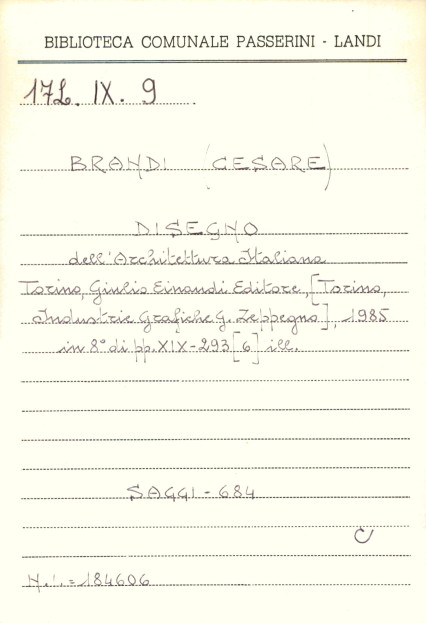 BIBLIOTECA COMUNALE PASSERINI - LANDI
17L. IX. 9
BRANDI (CESARE)
DISEGNO
dell'Architettura Italiana
Torino, Giulio Einaudi Editore, [Torino,
Industrie Grafiche G. Zeppegno], 1985
in 8° di pp. XIX-293 [6] ill.
SAGGI - 684
C
N.i. = 184606